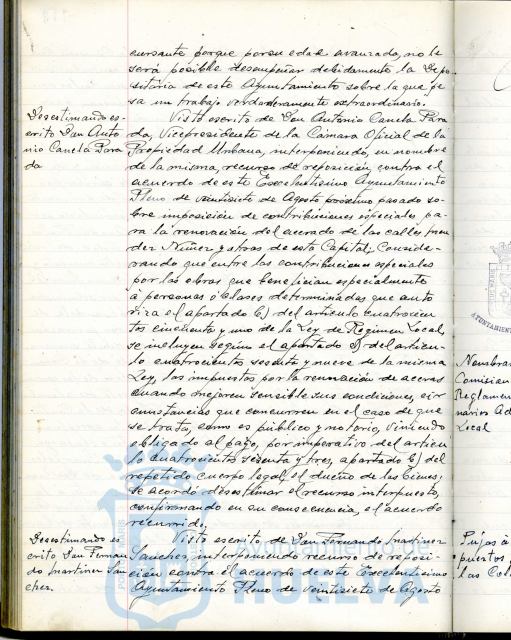 cursante porque por su edad avanzada, no le
será posible desempeñar debidamente la Depo-
sitaria de este Ayuntamiento sobre la que pe-
sa un trabajo verdaderamente extraordinario.
Desestimando es-
crito Don Anto
nio Cancla Para
da
Visto escrito de Don Antonio Cancla Para
da, Vicepresidente de la Cámara Oficial de la
Propiedad Urbana, interponiendo, en nombre
de la misma, recurso de reposición, contra el
acuerdo de este Excelentísimo Ayuntamiento
Pleno de veintisiete de Agosto próximo pasado so-
bre imposición de contribuciones especiales pa-
ra la renovación del acerado de las calles Men
dez Nuñez y otras de esta Capital; Conside-
rando que entre las contribuciones especiales
por las obras que benefician especialmente
a personas o clases determinadas que auto
riza el apartado b) del articulo cuatrocien
tos cincuenta y uno de la Ley de Régimen Local,
se incluyen según el apartado d) del articu-
lo cuatrocientos sesenta y nueve de la misma
Ley, los impuestos por la renovación de aceras
cuando mejoren sensible sus condiciones, cir
cunstancias que concurren en el caso de que
se trata, como es público y notorio, viniendo
obligado al pago, por imperativo del articu
lo cuatrocientos sesenta y tres, apartado b) del
repetido cuerpo legal, el dueño de los bienes;
se acordó desestimar el recurso interpuesto,
confirmando en su consecuencia, el acuerdo
recurrido.
Desestimando es
crito Don Fernan
do Martinez San
chez.
Visto escrito de Don Fernando Martinez
Sanchez, interponiendo recurso de reposi-
ción contra el acuerdo de este Excelentísimo
Ayuntamiento Pleno de veintisiete de Agosto
Nombrar
Comisión
Reglamen
narios Ad
Local
Pujas a
puestos
las Col
HUELVA